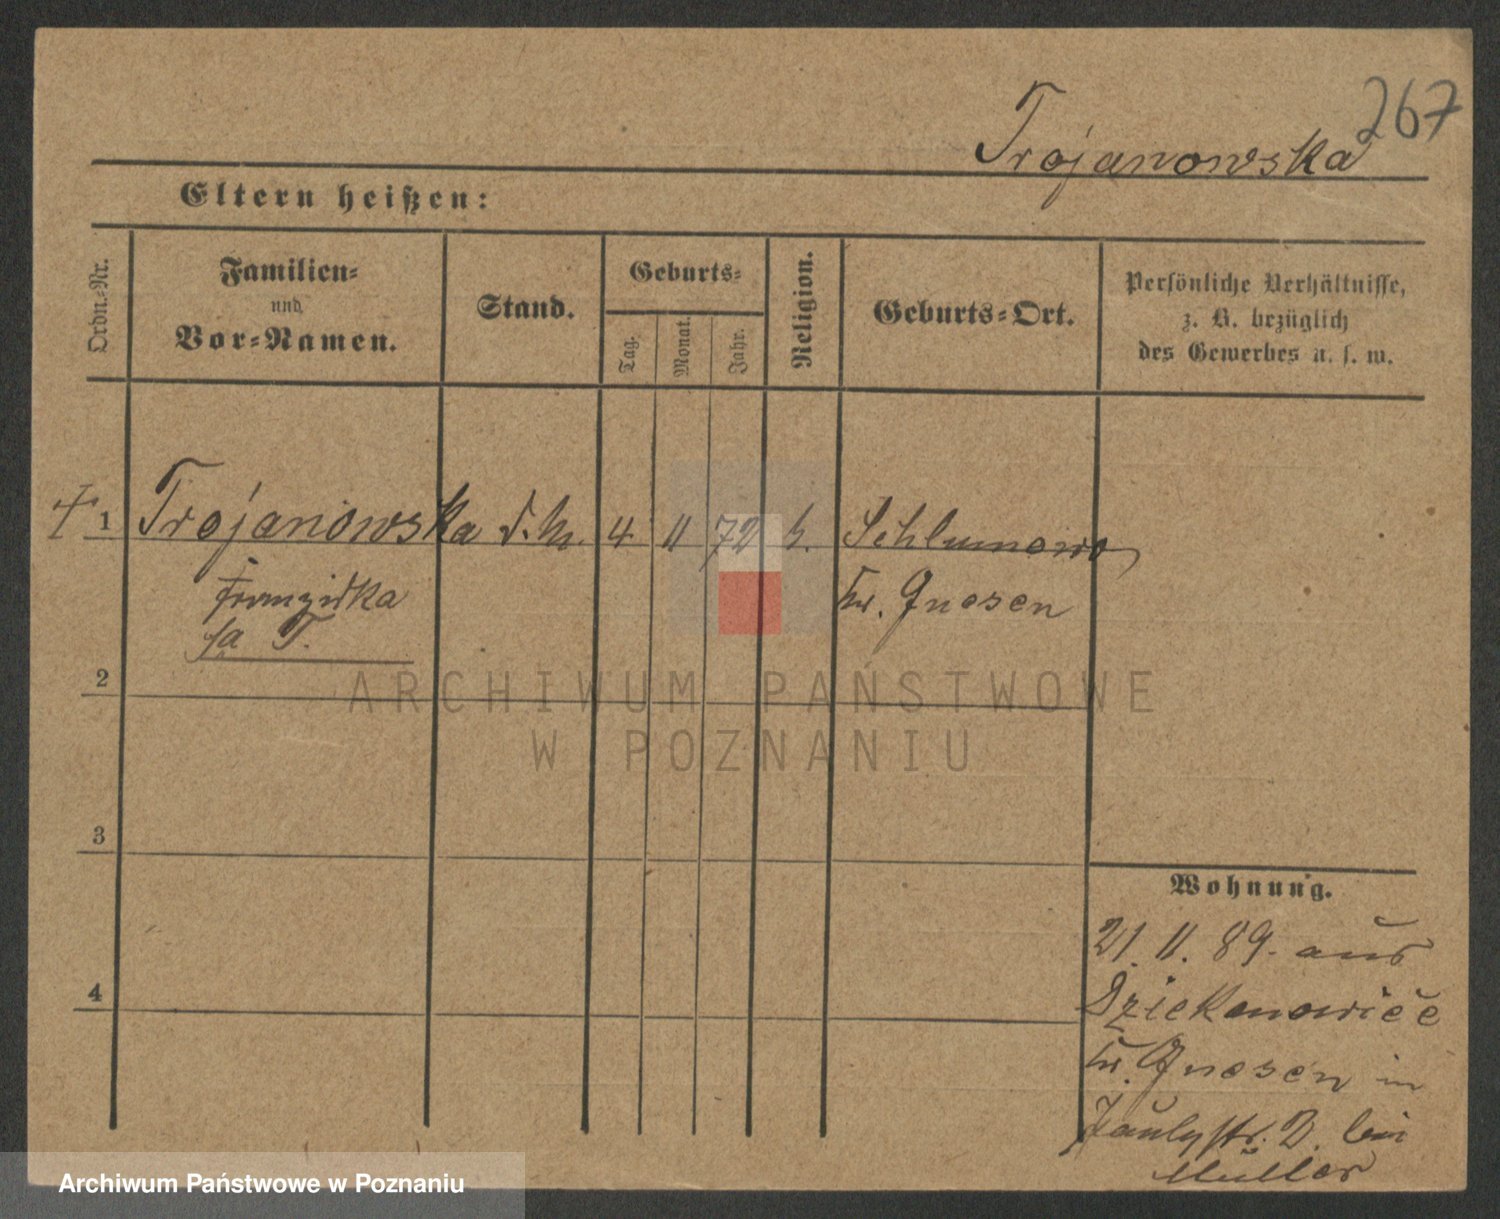 267
Trojanowska
Eltern heißen:
Ordn.-Nr.
Familien-
und
Vor-Namen.
Stand.
Geburts-
Tag.
Monat.
Jahr.
Religion.
Geburts-Ort.
Persönliche Verhältnisse,
z. B. bezüglich
des Gewerbes u. s. w.
1 Trojanowska d. M. 4 11 72 k. Schlumowo
Franziska
Kr. Gnesen
T.
2
ARCHIWUM PAŃSTWOWE
W POZNANIU
3
Wohnung.
21. 11. 89. aus
4
Dziekanowice
Kr. Gnesen in
Paulystr. 2. bei
Müller
Archiwum Państwowe w Poznaniu